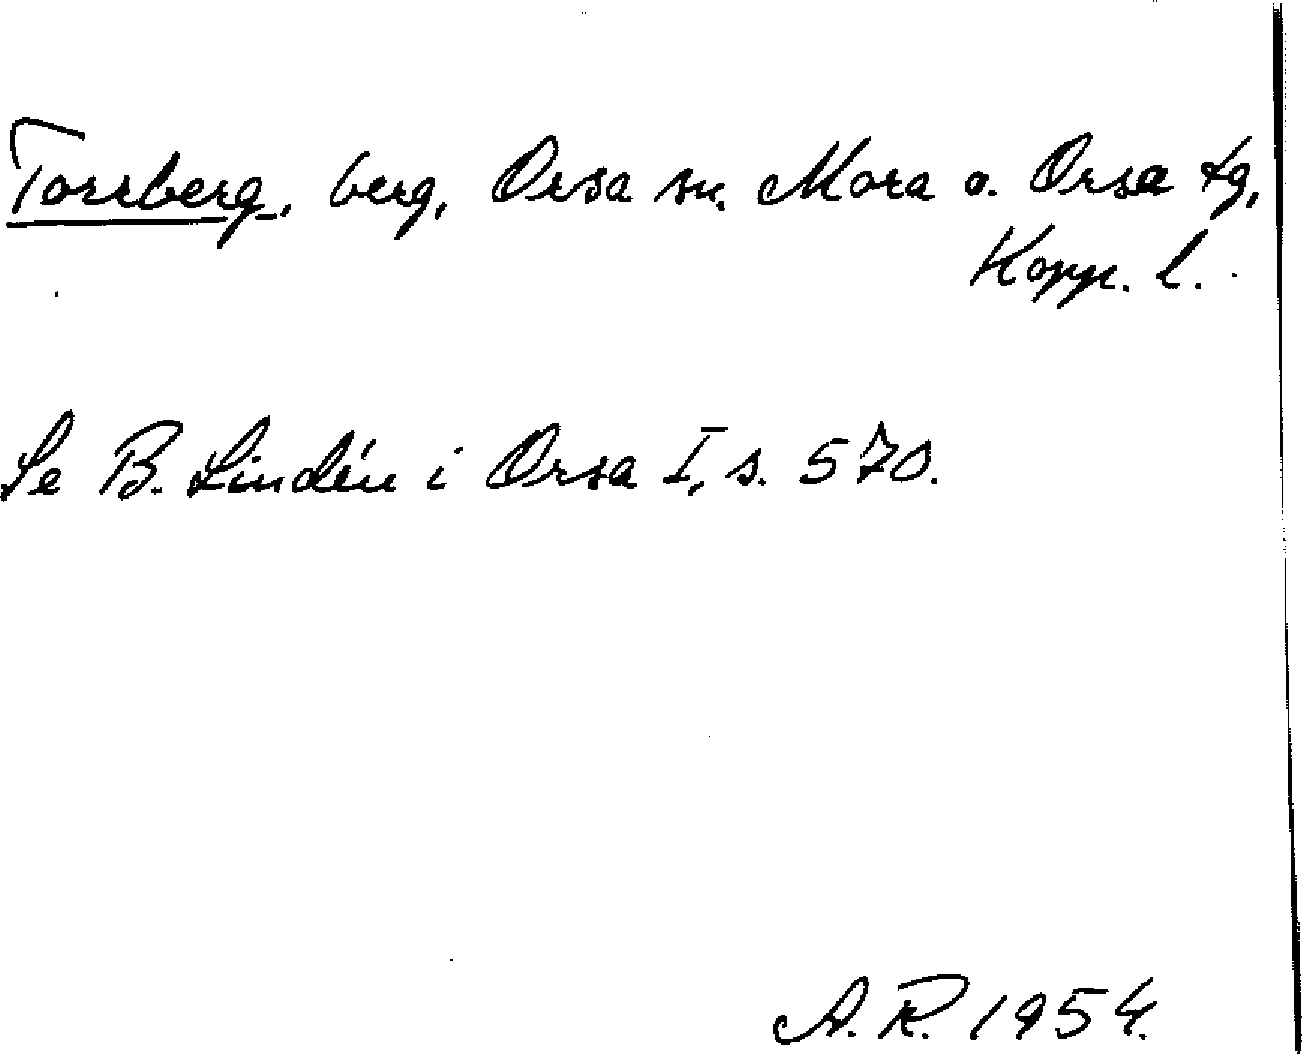 Torrberg, berg, Orsa sn. Mora o. Orsa tg,
Kopp. l.
Se B. Lindén i Orsa I, s. 570.
A. R. 1954.